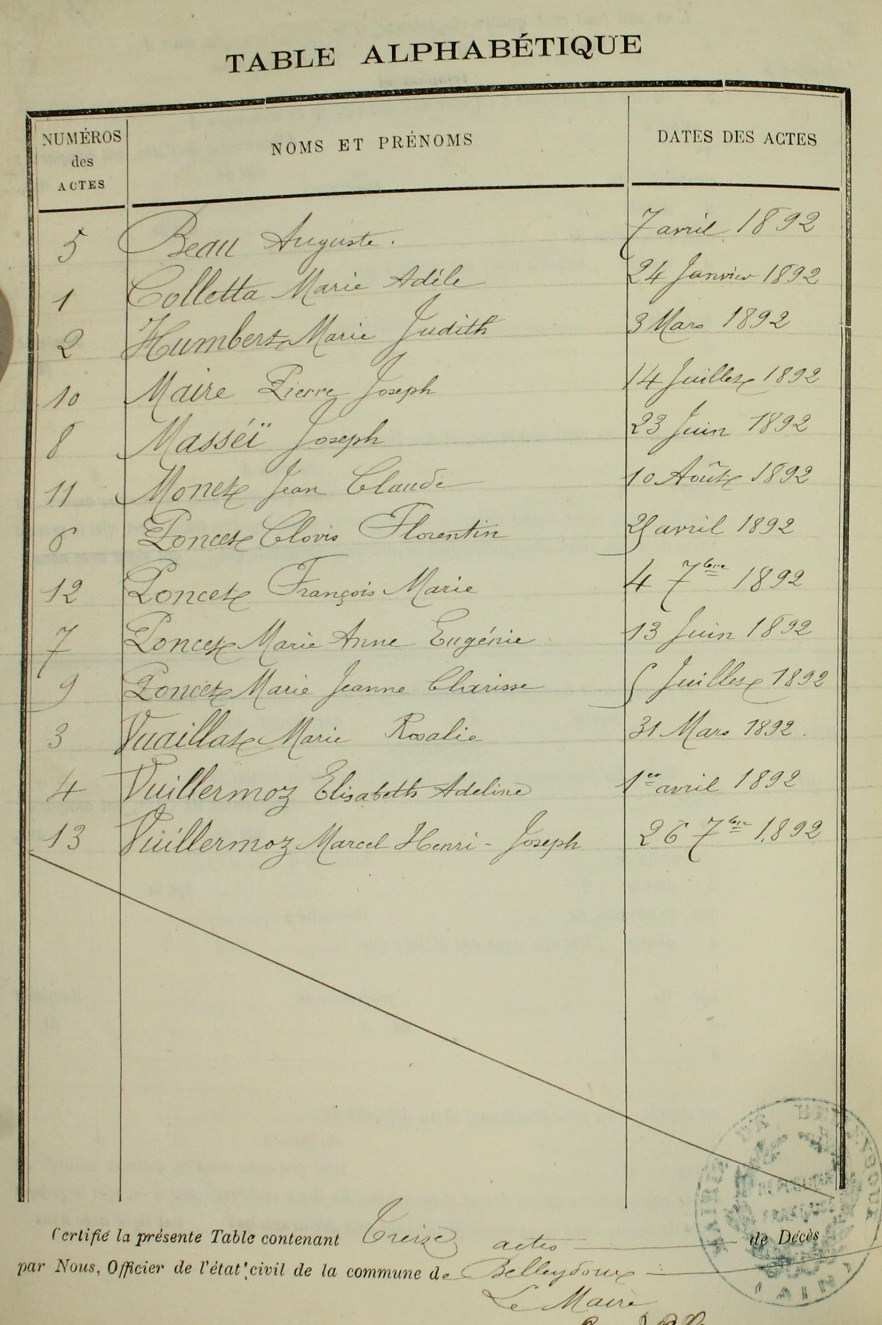 TABLE ALPHABÉTIQUE
NUMÉROS des ACTES NOMS ET PRÉNOMS DATES DES ACTES
5 Beau Auguste. 7 avril 1892
1 Colletta Marie Adèle 24 Janvier 1892
2 Humbert Marie Judith 3 Mars 1892
10 Maire Pierre Joseph 14 Juillet 1892
8 Masséï Joseph 23 Juin 1892
11 Monet Jean Claude 10 Août 1892
6 Poncet Clovis Florentin 25 avril 1892
12 Poncet François Marie 4 7bre 1892
7 Poncet Marie Anne Eugénie 13 Juin 1892
9 Poncet Marie Jeanne Clarisse 5 Juillet 1892
3 Vuaillat Marie Rosalie 31 Mars 1892.
4 Vuillermoz Elisabeth Adeline 1er avril 1892
13 Vuillermoz Marcel Henri-Joseph 26 7bre 1892
Certifié la présente Table contenant Treize actes de Décès
par Nous, Officier de l'état civil de la commune de Belleydoux
Le Maire
MAIRIE DE BELLEYDOUX
RÉPUBLIQUE
FRANÇAISE
(AIN)